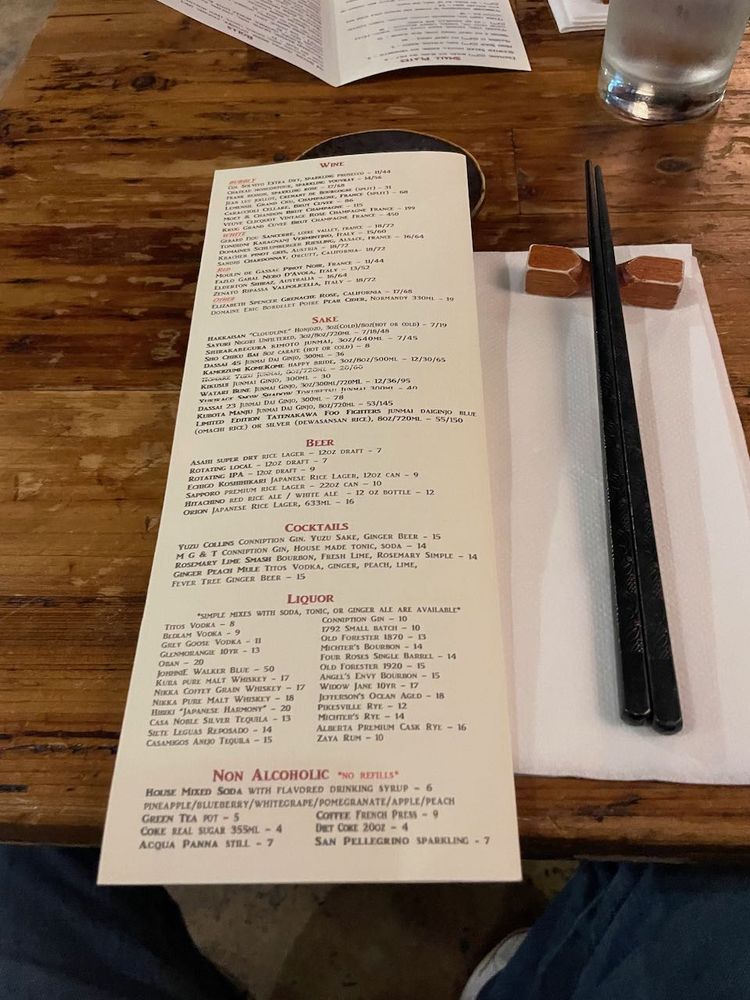 Small Plates
Rolls
Wine
Bubbly
Col Solivo Extra Dry, sparkling prosecco – 11/44
sparkling vouvray – 14/56
sparkling rose – 17/68
Crémant de Bourgogne (split) – 31
Lombard Grand Cru, Champagne, France (split) – 68
Caraccioli Cellars, Brut Cuvee – 86
Moet & Chandon Brut Champagne – 115
Veuve Clicquot Vintage Rose Champagne France – 199
Krug Grand Cuvee Brut Champagne, France – 450
White
Sancerre, loire valley, france – 18/72
Vermintino, Italy – 15/60
Domaines Schlumberger Riesling, Alsace, France – 16/64
Kracher pinot gris, Austria – 18/72
Sandhi Chardonnay, Orcutt, California – 18/72
Red
Moulin de Gassac Pinot Noir, France – 11/44
Fazlo Garai Nero D'Avola, Italy – 13/52
Elderton Shiraz, Australia – 16/64
Zenato Ripassa Valpolicella, Italy – 18/72
Other
Elizabeth Spencer Grenache Rose, California – 17/68
Domaine Eric Bordelet Poire Pear Cider, Normandy 330ml – 19
Sake
Hakkaisan "Cloudline" Honjozo, 3oz(cold)/8oz(hot or cold) – 7/19
Sayuri Nigori Unfiltered, 3oz/8oz/720ml – 7/18/48
Shirakabegura kimoto junmai, 3oz/640ml – 7/45
Sho Chiku Bai 8oz carafe (hot or cold) – 8
Dassai 45 Junmai Dai Ginjo, 300ml – 36
Kamoizumi KomeKome happy bride, 3oz/8oz/500ml – 12/30/65
Yuzu Junmai, 8oz/720ml – 20/60
Kikusui Junmai Ginjo, 300ml – 30
Watari Bune Junmai Ginjo, 3oz/300ml/720ml – 12/36/95
Yukikage Snow Shadow Tokubetsu Junmai 300ml – 40
Dassai 23 Junmai Dai Ginjo, 300ml – 78
Kubota Manju Junmai Dai Ginjo, 8oz/720ml – 53/145
Limited Edition Tatenakawa Foo Fighters junmai daiginjo blue
(omachi rice) or silver (dewasansan rice), 8oz/720ml – 55/150
Beer
Asahi super dry rice lager – 12oz draft – 7
Rotating local – 12oz draft – 7
Rotating IPA – 12oz draft – 9
Echigo Koshihikari Japanese Rice Lager, 12oz can – 9
Sapporo premium rice lager – 22oz can – 10
Hitachino red rice ale / white ale – 12 oz bottle – 12
Orion Japanese Rice Lager, 633ml – 16
Cocktails
Yuzu Collins Conniption Gin. Yuzu Sake, Ginger Beer – 15
M G & T Conniption Gin, House made tonic, soda – 14
Rosemary Lime Smash Bourbon, Fresh Lime, Rosemary Simple – 14
Ginger Peach Mule Titos Vodka, ginger, peach, lime,
Fever Tree Ginger Beer – 15
Liquor
*simple mixes with soda, tonic, or ginger ale are available*
Titos Vodka – 8
Bedlam Vodka – 9
Grey Goose Vodka – 11
Glenmorangie 10yr – 13
Oban – 20
Johnnie Walker Blue – 50
Kura pure malt Whiskey – 17
Nikka Coffey Grain Whiskey – 17
Nikka Pure Malt Whiskey – 18
Hibiki "Japanese Harmony" – 20
Casa Noble Silver Tequila – 13
Siete Leguas Reposado – 14
Casamigos Anejo Tequila – 15
Conniption Gin – 10
1792 Small batch – 10
Old Forester 1870 – 13
Michter's Bourbon – 14
Four Roses Single Barrel – 14
Old Forester 1920 – 15
Angel's Envy Bourbon – 15
Widow Jane 10yr – 17
Jefferson's Ocean Aged – 18
Pikesville Rye – 12
Michter's Rye – 14
Alberta Premium Cask Rye – 16
Zaya Rum – 10
Non Alcoholic *no refills*
House Mixed Soda with flavored drinking syrup – 6
pineapple/blueberry/whitegrape/pomegranate/apple/peach
Green Tea pot – 5
Coke real sugar 355ml – 4
Acqua Panna still – 7
Coffee French Press – 9
Diet Coke 20oz – 4
San Pellegrino sparkling – 7